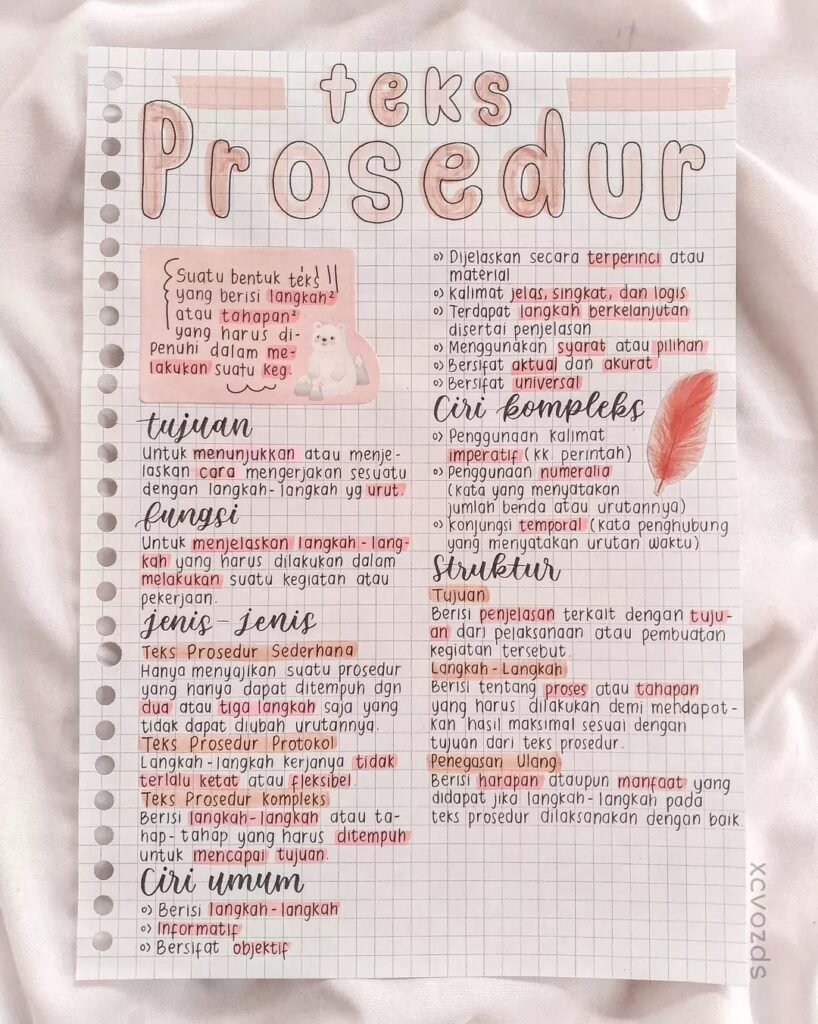 teks
Prosedur
Suatu bentuk teks
yang berisi langkah²
atau tahapan²
yang harus di-
Penuhi dalam me-
lakukan suatu keg.
tujuan
Untuk menunjukkan atau menje-
laskan cara mengerjakan sesuatu
dengan langkah-langkah yg urut.
fungsi
Untuk menjelaskan langkah-lang-
kah yang harus dilakukan dalam
melakukan suatu kegiatan atau
pekerjaan.
jenis-jenis
Teks Prosedur Sederhana
Hanya menyajikan suatu prosedur
yang hanya dapat ditempuh dgn
dua atau tiga langkah saja yang
tidak dapat diubah urutannya.
Teks Prosedur Protokol
Langkah-langkah kerjanya tidak
terlalu ketat atau fleksibel.
Teks Prosedur kompleks
Berisi langkah-langkah atau ta-
hap-tahap yang harus ditempuh
untuk mencapai tujuan.
Ciri umum
o) Berisi langkah-langkah
o) Informatif
o) Bersifat objektif
o) Dijelaskan secara terperinci atau
material
o) Kalimat jelas, singkat, dan logis
o) Terdapat langkah berkelanjutan
disertai penjelasan
o) Menggunakan syarat atau pilihan
o) Bersifat aktual dan akurat
o) Bersifat universal
Ciri kompleks
o) Penggunaan kalimat
imperatif (kk. perintah)
o) Penggunaan numeralia
(kata yang menyatakan
jumlah benda atau urutannya)
o) konjungsi temporal (kata penghubung
yang menyatakan urutan waktu)
Struktur
Tujuan
Berisi penjelasan terkait dengan tuju-
an dari pelaksanaan atau pembuatan
kegiatan tersebut.
Langkah-Langkah
Berisi tentang proses atau tahapan
yang harus dilakukan demi mendapat-
kan hasil maksimal sesuai dengan
tujuan dari teks prosedur.
Penegasan Ulang
Berisi harapan ataupun manfaat yang
didapat jika langkah-langkah pada
teks prosedur dilaksanakan dengan baik.
xcvozds